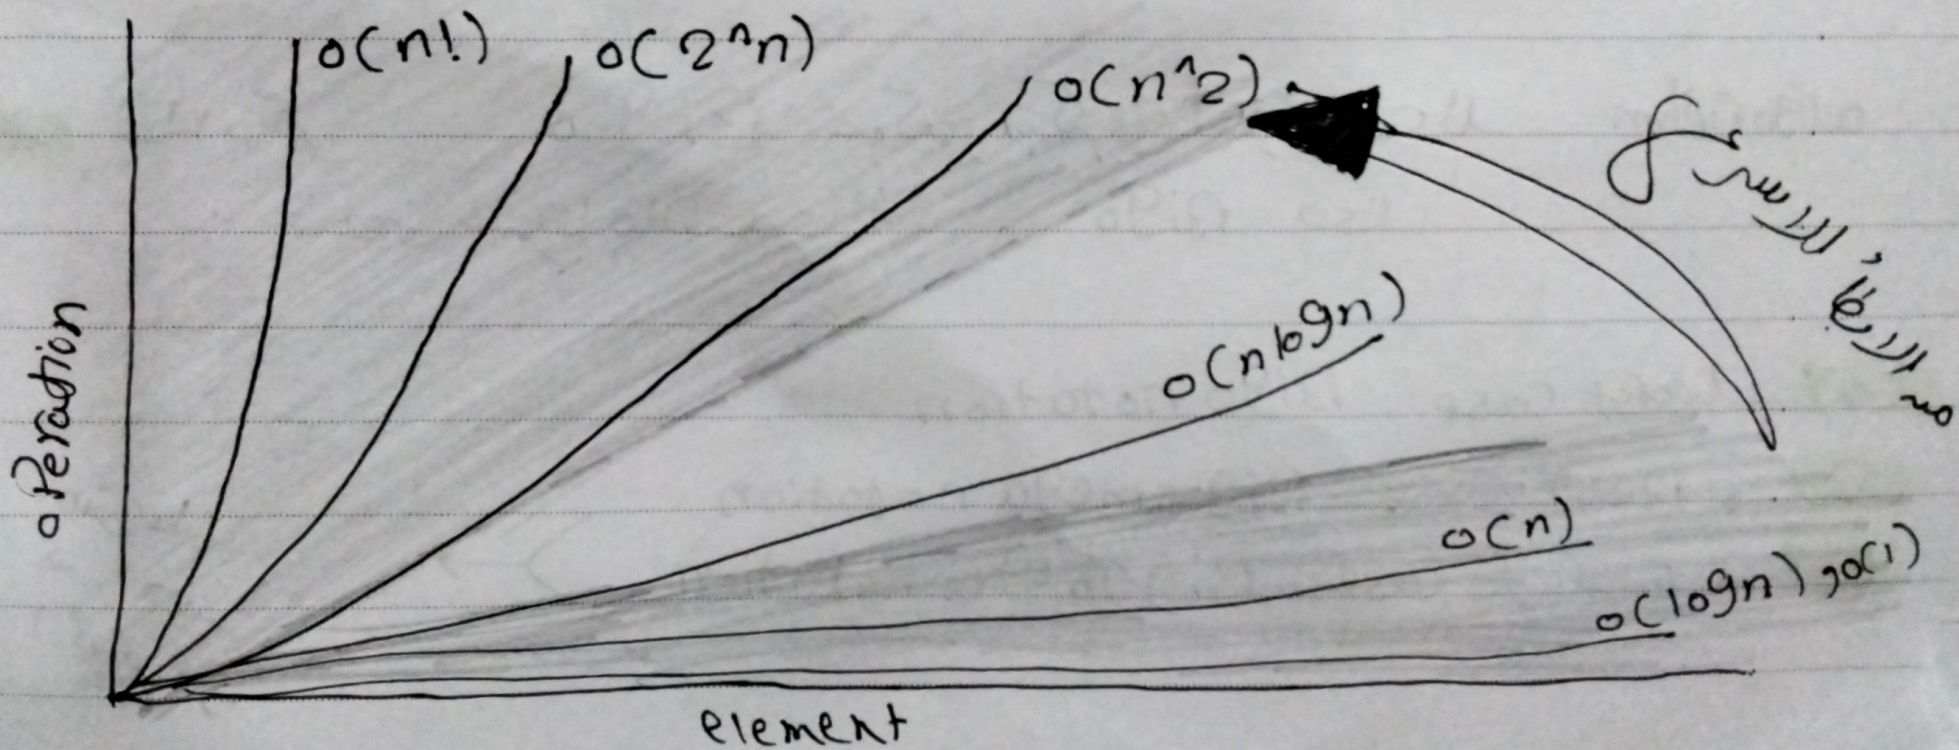 o(n!)
o(2^n)
o(n^2)
o(nlogn)
o(n)
o(logn), o(1)
oPeration
element
من الاسرع